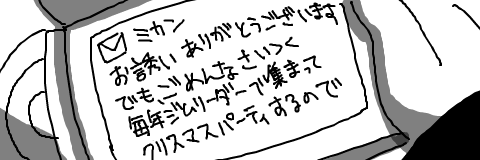 ミカン
お誘い ありがとうございます
でもごめんなさい><
毎年ジムリーダーで集まって
クリスマスパーティするので